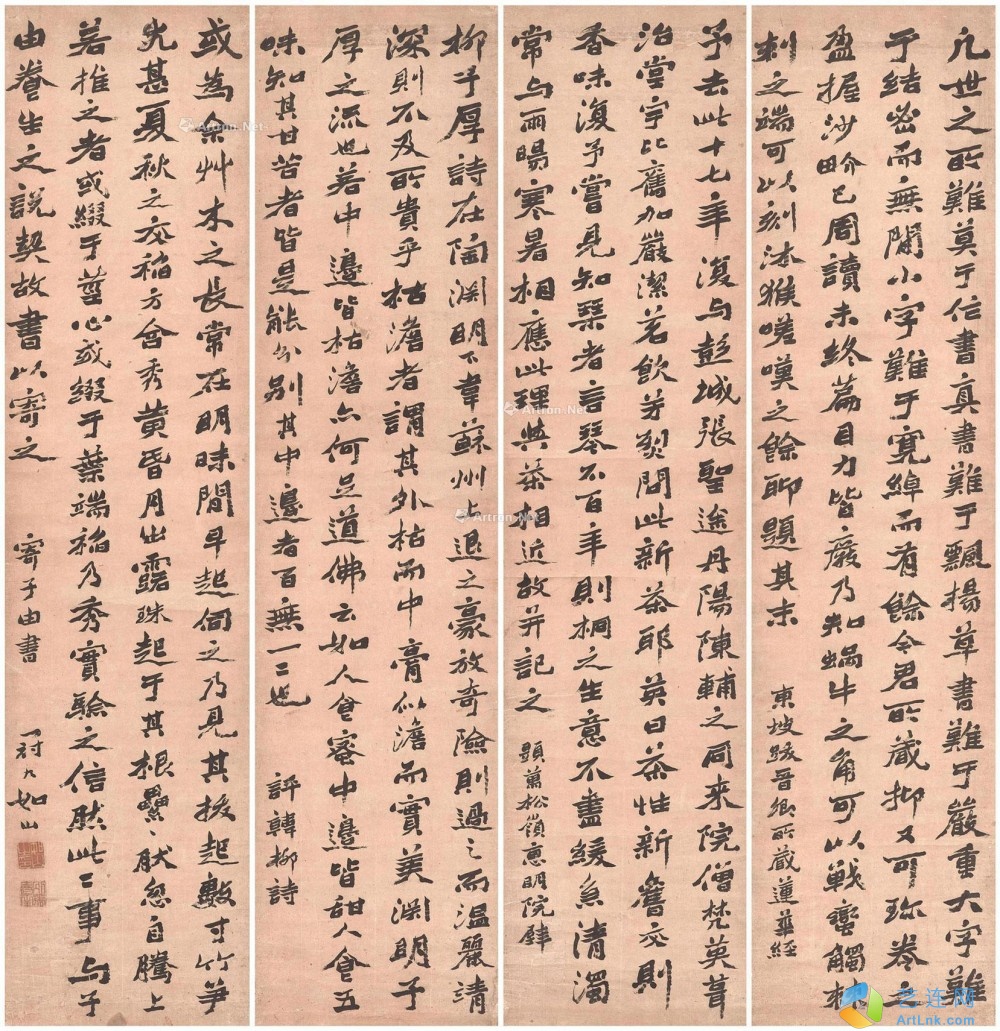 凡世之所難莫于作書真書難于飄揚草書難于嚴重大字難
于結密而無間小字難于寬綽而有餘今君所藏抑又可珍卷之
盈握沙界已周讀未終篇目力皆廢乃知蝸牛之角可以戰蠻觸棘
刺之端可以刻沐猴嗟嘆之餘聊題其末
東坡跋晉卿所藏蓮華經
予去此十七年復与彭城張聖途丹陽陳輔之同来院僧梵英葺
治堂宇比舊加嚴潔茗飲芳烈問此新茶耶英曰茶性新舊交則
香味復予嘗見知琴者言琴不百年則桐之生意不盡緩急清濁
常与雨暘寒暑相應此理與茶相近故并記之
題萬松嶺惠明院肆
柳子厚詩在陶淵明下韋蘇州上退之豪放奇險則過之而温麗清
深則不及所貴乎枯澹者謂其外枯而中膏似澹而實美淵明子
厚之流也若中邊皆枯澹亦何足道佛云如人食蜜中邊皆甜人食五
味知其甘苦者皆是能分别其中邊者百無一二也
評韓柳詩
或為余艸木之長常在明昧間早起伺之乃見其拔起數寸竹笋
尤甚夏秋之交稻方含秀黄昏月出露珠起于其根纍〻肰忽自騰上
若推之者或綴于莖心或綴于葉端稻乃秀實驗之信肰此二事与子
由養生之說契故書以寄之
寄子由書
如山
Artron.Net
Artron.Net
Artron.Net
Artron.Net
艺连网
ArtLnk.com